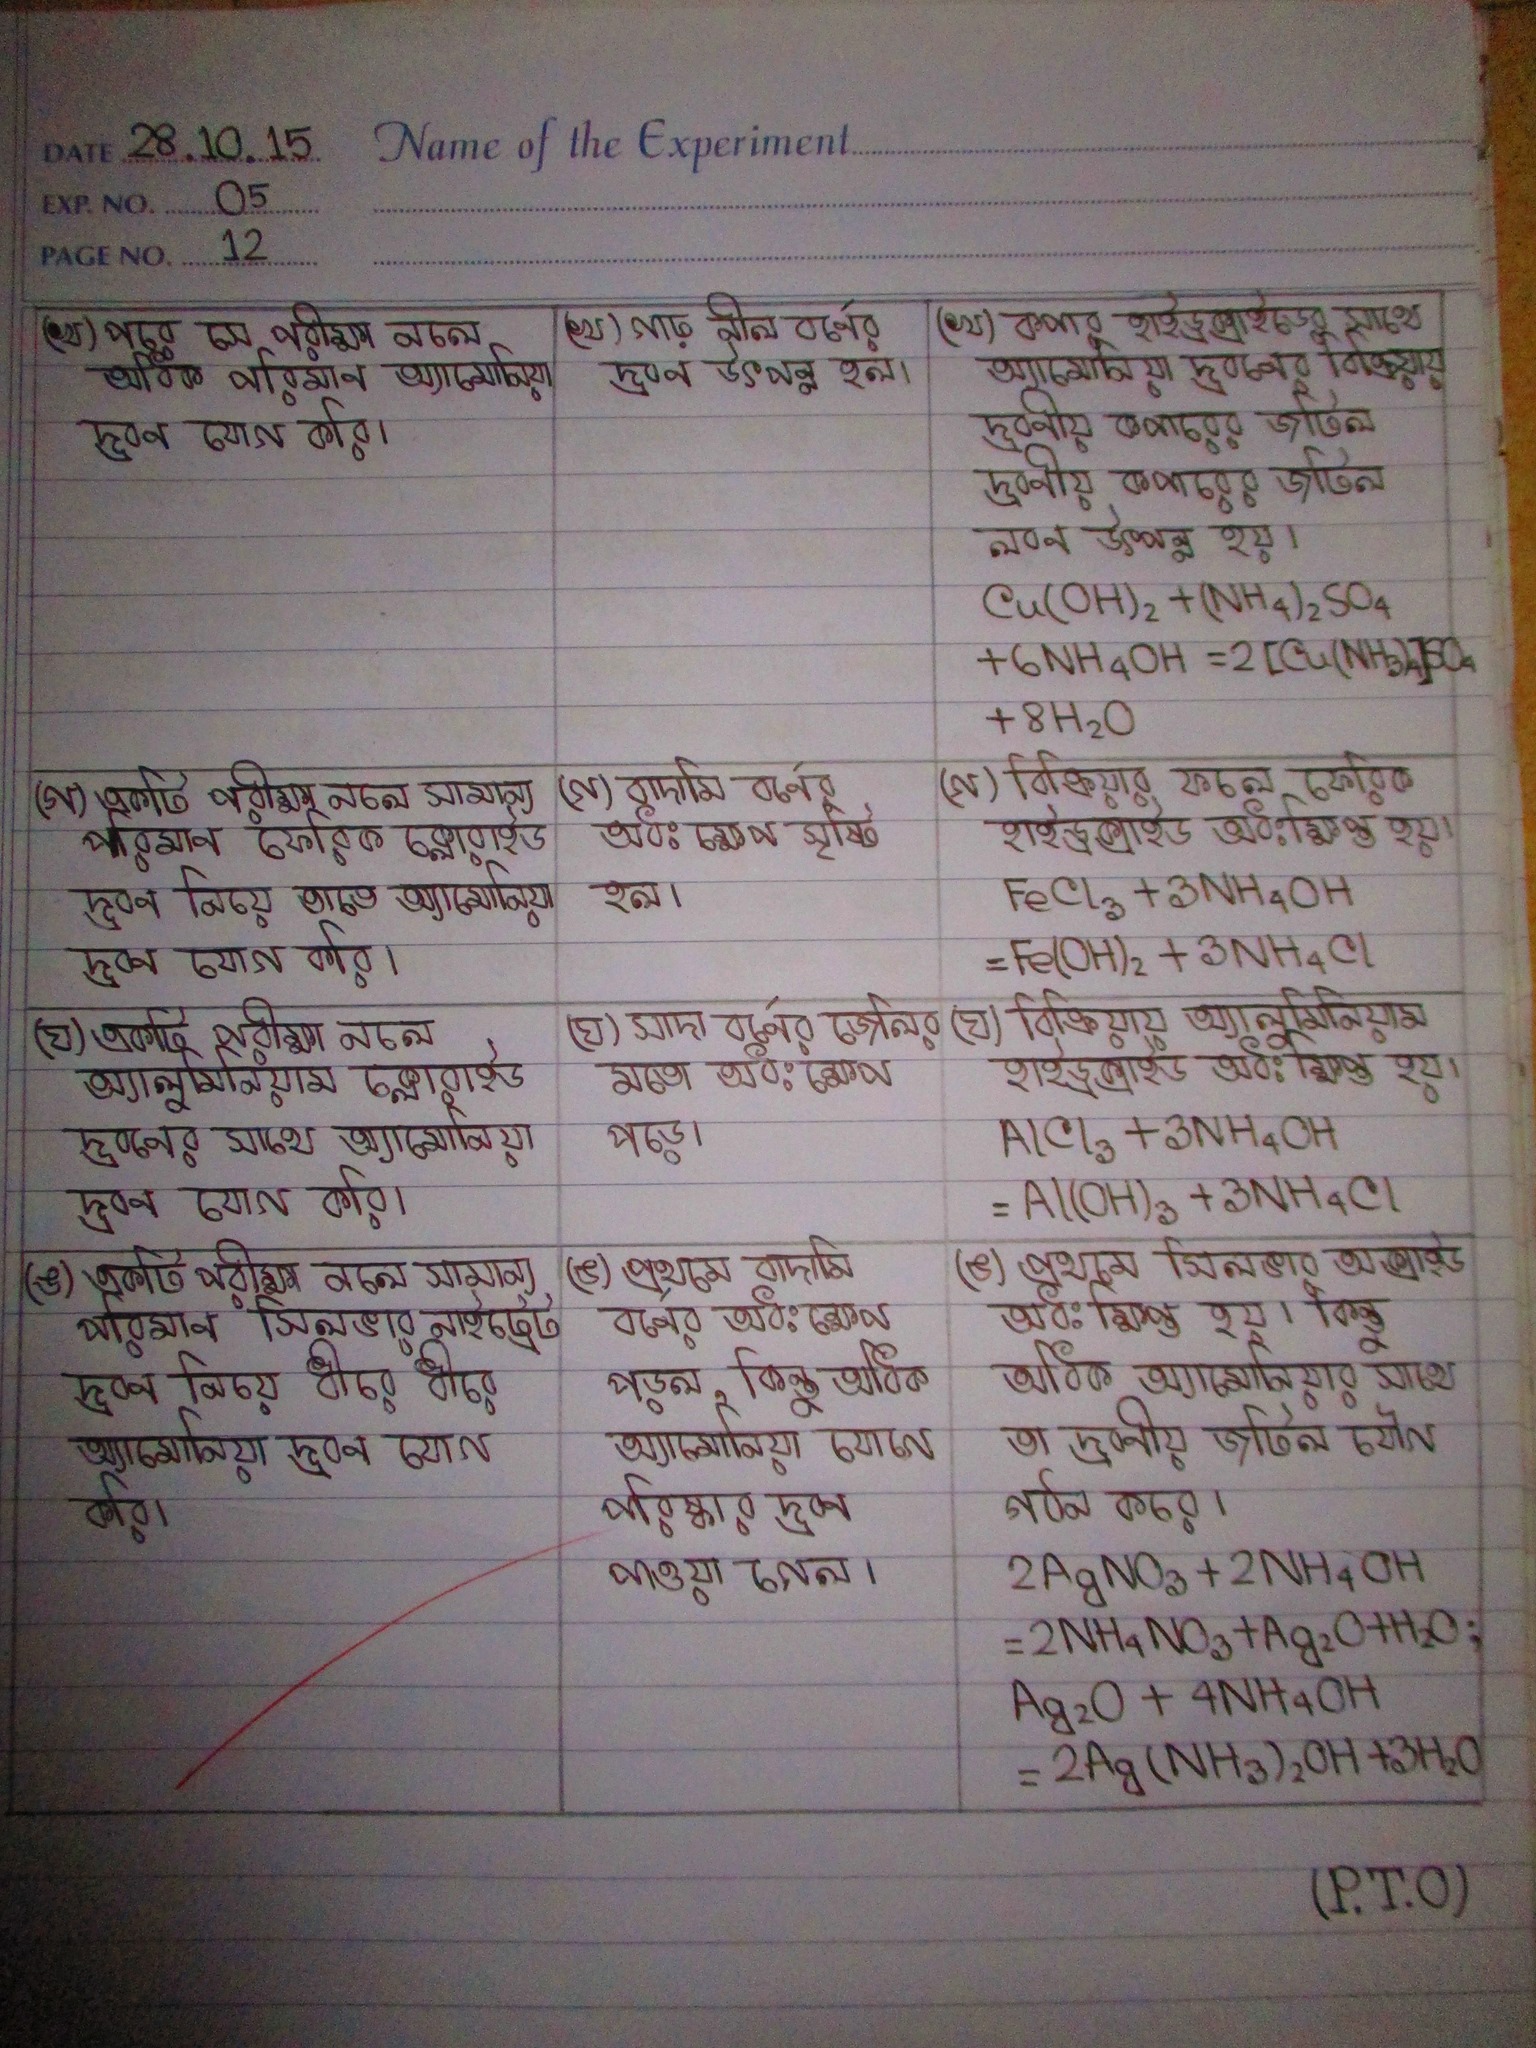 DATE 28.10.15 Name of the Experiment
EXP. NO. 05
PAGE NO. 12
(খ) পরে সে পরীক্ষা নলে
অধিক পরিমান অ্যামোনিয়া
দ্রবণ যোগ করি।
(খ) গাঢ় নীল বর্নের
দ্রবণ উৎপন্ন হল।
(খ) কপার হাইড্রক্সাইডের সাথে
অ্যামোনিয়া দ্রবনের বিক্রিয়ায়
দ্রবনীয় কপারের জটিল
দ্রবনীয় কপারের জটিল
লবন উৎপন্ন হয়।
Cu(OH)₂ + (NH₄)₂SO₄
+ 6NH₄OH = 2[Cu(NH₃)₄]SO₄
+ 8H₂O
(গ) একটি পরীক্ষা নলে সামান্য
পরিমান ফেরিক ক্লোরাইড
দ্রবণ নিয়ে তাতে অ্যামোনিয়া
দ্রবণ যোগ করি।
(গ) বাদামি বর্নের
অধঃক্ষেপ সৃষ্টি
হল।
(গ) বিক্রিয়ার ফলে ফেরিক
হাইড্রক্সাইড অধঃক্ষিপ্ত হয়।
FeCl₃ + 3NH₄OH
= Fe(OH)₂ + 3NH₄Cl
(ঘ) একটি পরীক্ষা নলে
অ্যালুমিনিয়াম ক্লোরাইড
দ্রবনের সাথে অ্যামোনিয়া
দ্রবণ যোগ করি।
(ঘ) সাদা বর্নের জেলির
মতো অধঃক্ষেপ
পড়ে।
(ঘ) বিক্রিয়ায় অ্যালুমিনিয়াম
হাইড্রক্সাইড অধঃক্ষিপ্ত হয়।
AlCl₃ + 3NH₄OH
= Al(OH)₃ + 3NH₄Cl
(ঙ) একটি পরীক্ষা নলে সামান্য
পরিমান সিলভার নাইট্রেট
দ্রবণ নিয়ে ধীরে ধীরে
অ্যামোনিয়া দ্রবণ যোগ
করি।
(ঙ) প্রথমে বাদামি
বর্নের অধঃক্ষেপ
পড়ল, কিন্তু অধিক
অ্যামোনিয়া যোগে
পরিষ্কার দ্রবণ
পাওয়া গেল।
(ঙ) প্রথমে সিলভার অক্সাইড
অধঃক্ষিপ্ত হয়। কিন্তু
অধিক অ্যামোনিয়ার সাথে
তা দ্রবনীয় জটিল যৌগ
গঠন করে।
2AgNO₃ + 2NH₄OH
= 2NH₄NO₃ + Ag₂O + H₂O;
Ag₂O + 4NH₄OH
= 2Ag(NH₃)₂OH + 3H₂O
(P.T.O)